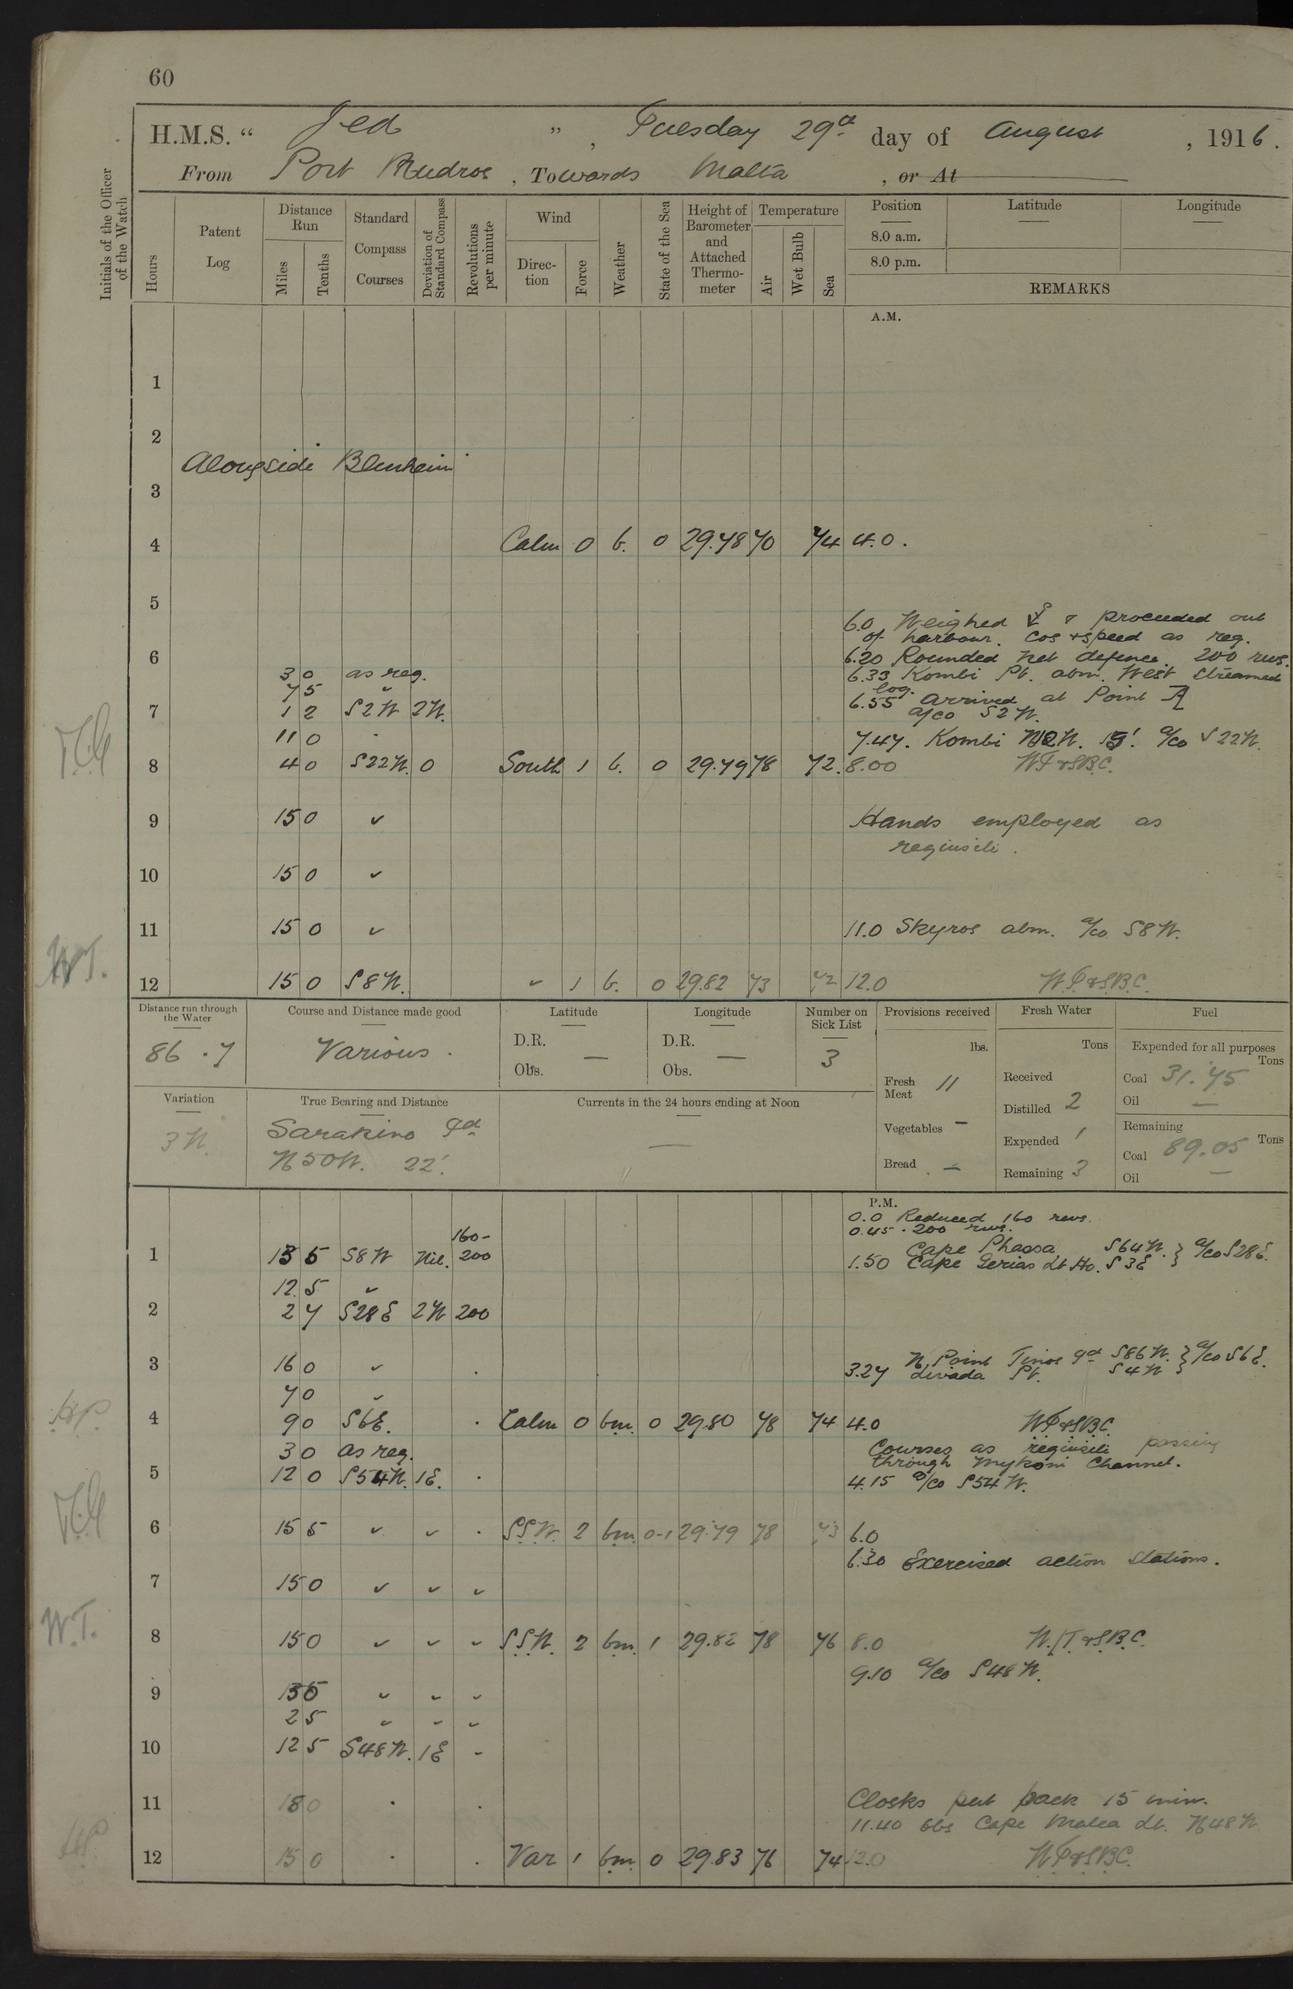 60
H.M.S. “ Jed ” , Tuesday 29th day of August , 1916.
From Port Mudros , Towards Malta , or At
Initials of the Officer of the Watch
Hours
Patent Log
Distance Run
Miles
Tenths
Standard Compass Courses
Deviation of Standard Compass
Revolutions per minute
Wind
Direction
Force
Weather
State of the Sea
Height of Barometer and Attached Thermometer
Temperature
Air
Wet Bulb
Sea
Position
8.0 a.m.
8.0 p.m.
Latitude
Longitude
REMARKS
A.M.
1
2
Alongside Blenheim
3
4 Calm 0 b. 0 29.78 70 74 4.0.
5
6.0 Weighed & proceeded out
of harbour. Cos & speed as req.
6 6.20 Rounded net defence. 200 revs.
3 0 as req. 6.33 Kombi Pt. abm. West streamed
7 5 log.
7 1 2 S2W 2W. 6.55 Arrived at Point A
a/co S2W.
11 0 7.47. Kombi a/co S22W.
8 4 0 S22W. 0 South 1 b. 0 29.79 78 72. 8.00 WT & SBC.
9 15 0 ✓ Hands employed as
requisite.
10 15 0 ✓
11 15 0 ✓ 11.0 Skyros abm. a/co S8W.
12 15 0 S8W. ✓ 1 b. 0 29.82 73 72 12.0 W.T & S.B.C.
Distance run through the Water
86.7
Course and Distance made good
Various.
Latitude
D.R. —
Obs.
Longitude
D.R. —
Obs.
Number on Sick List
3
Provisions received
lbs.
Fresh Meat 11
Vegetables –
Bread –
Fresh Water
Tons
Received
Distilled 2
Expended 1
Remaining 3
Fuel
Expended for all purposes
Tons
Coal 31.75
Oil —
Remaining
Tons
Coal 89.05
Oil —
Variation
3W.
True Bearing and Distance
Sarakino Id
N50W. 22'.
Currents in the 24 hours ending at Noon
—
P.M.
0.0 Reduced 160 revs.
0.45. 200 revs.
160-
1 13 5 S8W Nil. 200 Cape Phassa S64W. } a/co S28E.
1.50 Cape Gerias Lt Ho. S3E }
12 5 ✓
2 2 7 S28E 2W 200
3 16 0 ✓ . N. Point Tinos Id S86W. } a/co S6E.
3.27 Livada Pt. S4W }
7 0 ✓
4 9 0 S6E. . Calm 0 bm. 0 29.80 78 74 4.0 WT & SBC.
3 0 as req. Courses as requisite passing
through Mykoni Channel.
5 12 0 S54W. 1E. . 4.15 a/co S54W.
6 15 5 ✓ ✓ . SSW. 2 bm. 0-1 29.79 78 73 6.0
6.30 Exercised action stations.
7 15 0 ✓ ✓ ✓
8 15 0 ✓ ✓ ✓ SSW. 2 bm. 1 29.82 78 76 8.0 W/T & S.B.C.
9.10 a/co S48W.
9 ✓ ✓ ✓
2 5 ✓ ✓ ✓
10 12 5 S48W. 1E -
11 0 . . Clocks put back 15 min.
11.40 Obs Cape Malea Lt. N48W
W.T.
12 15 0 . . Var 1 bm. 0 29.83 76 74 12.0 WT & SBC.